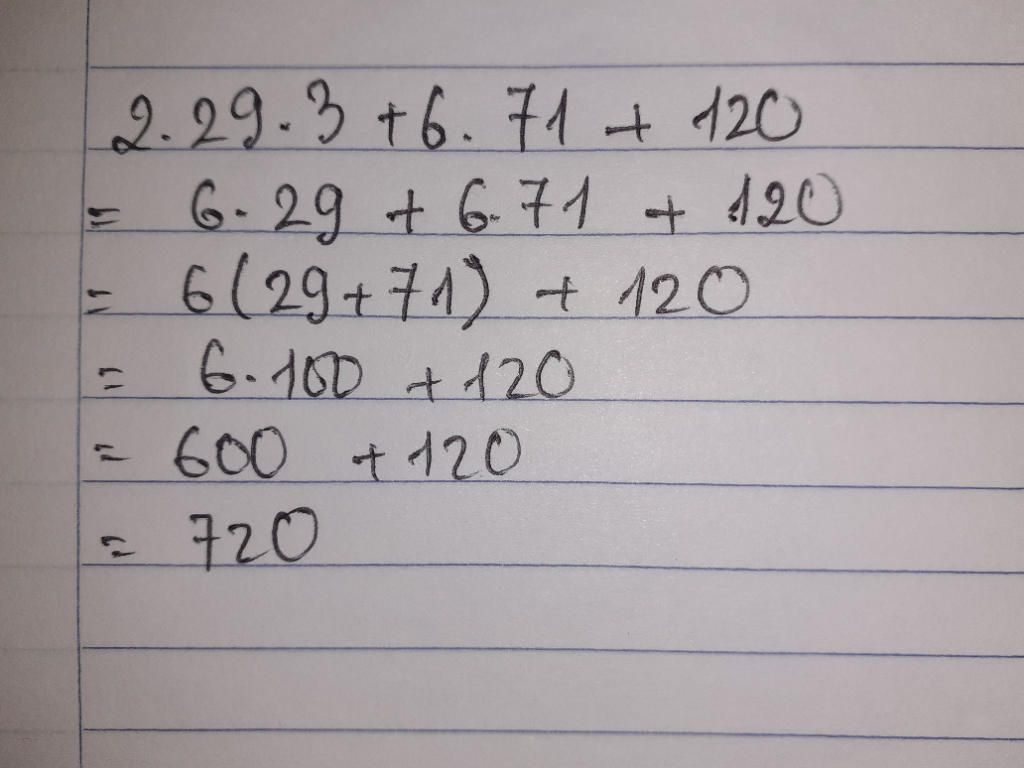 2.29.3 + 6.71 + 120
= 6.29 + 6.71 + 120
= 6(29+71) + 120
= 6.100 + 120
= 600 + 120
= 720